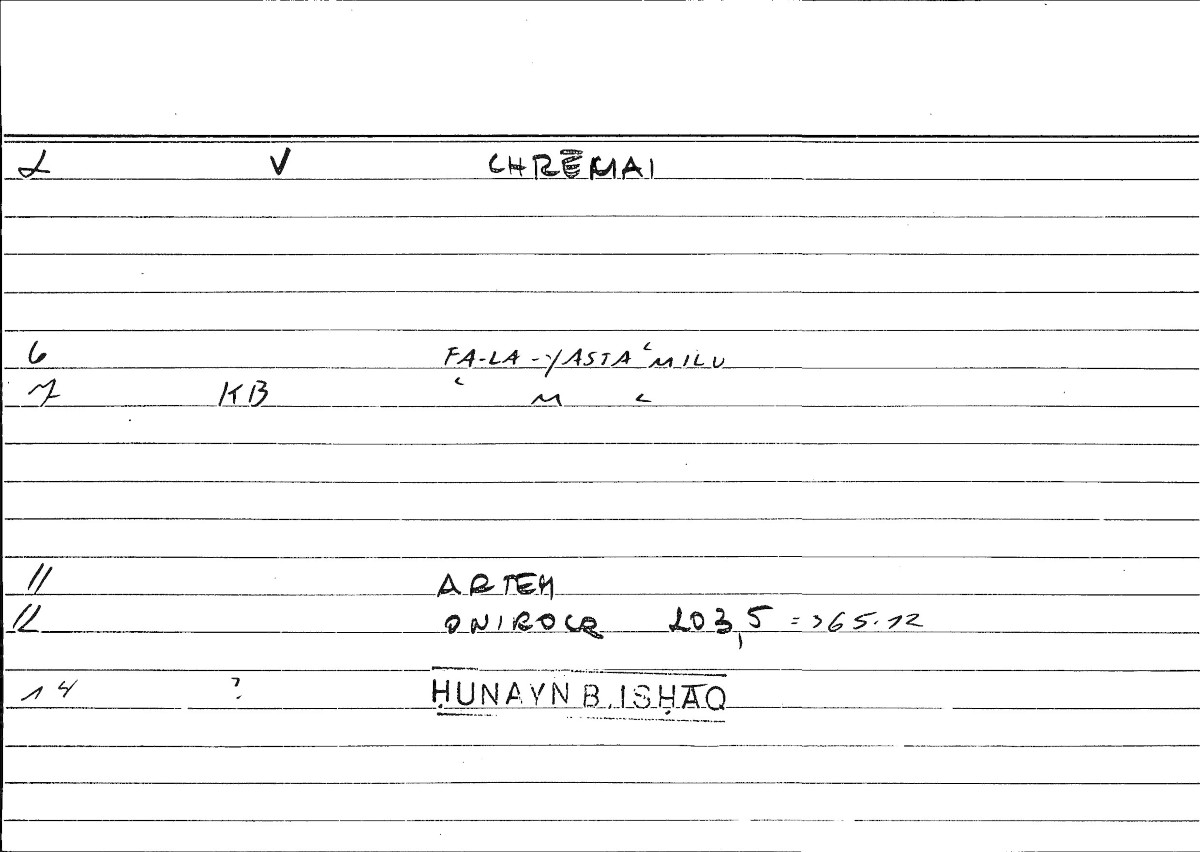 2 V CHRĒMAI
6 FA-LA-YASTAʿMILU
7 KB ʿ M ʿ
11 ARTEM
12 ONIROCR 203,5 = 365.12
14 ? ḤUNAYN B. ISḤĀQ